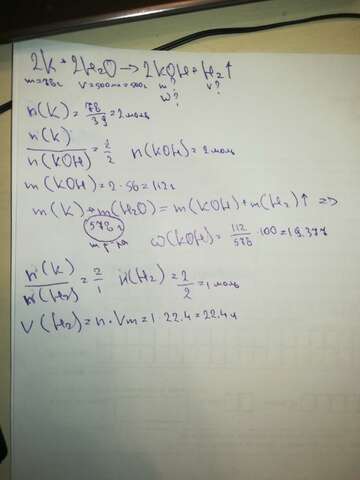 2K + 2H₂O → 2KOH + H₂↑
m=78г V=500мл=500г m? V?
w?
n(K) = 78/39 = 2 моль
n(K)/n(KOH) = 2/2 n(KOH) = 2 моль
m(KOH) = 2 · 56 = 112г
m(K) + m(H₂O) = m(KOH) + m(H₂)↑ =>
578г
m р-ра
ω(KOH) = 112/578 · 100 = 19.37%
n(K)/n(H₂) = 2/1 n(H₂) = 2/2 = 1 моль
V(H₂) = n · Vm = 1 · 22.4 = 22.4 л